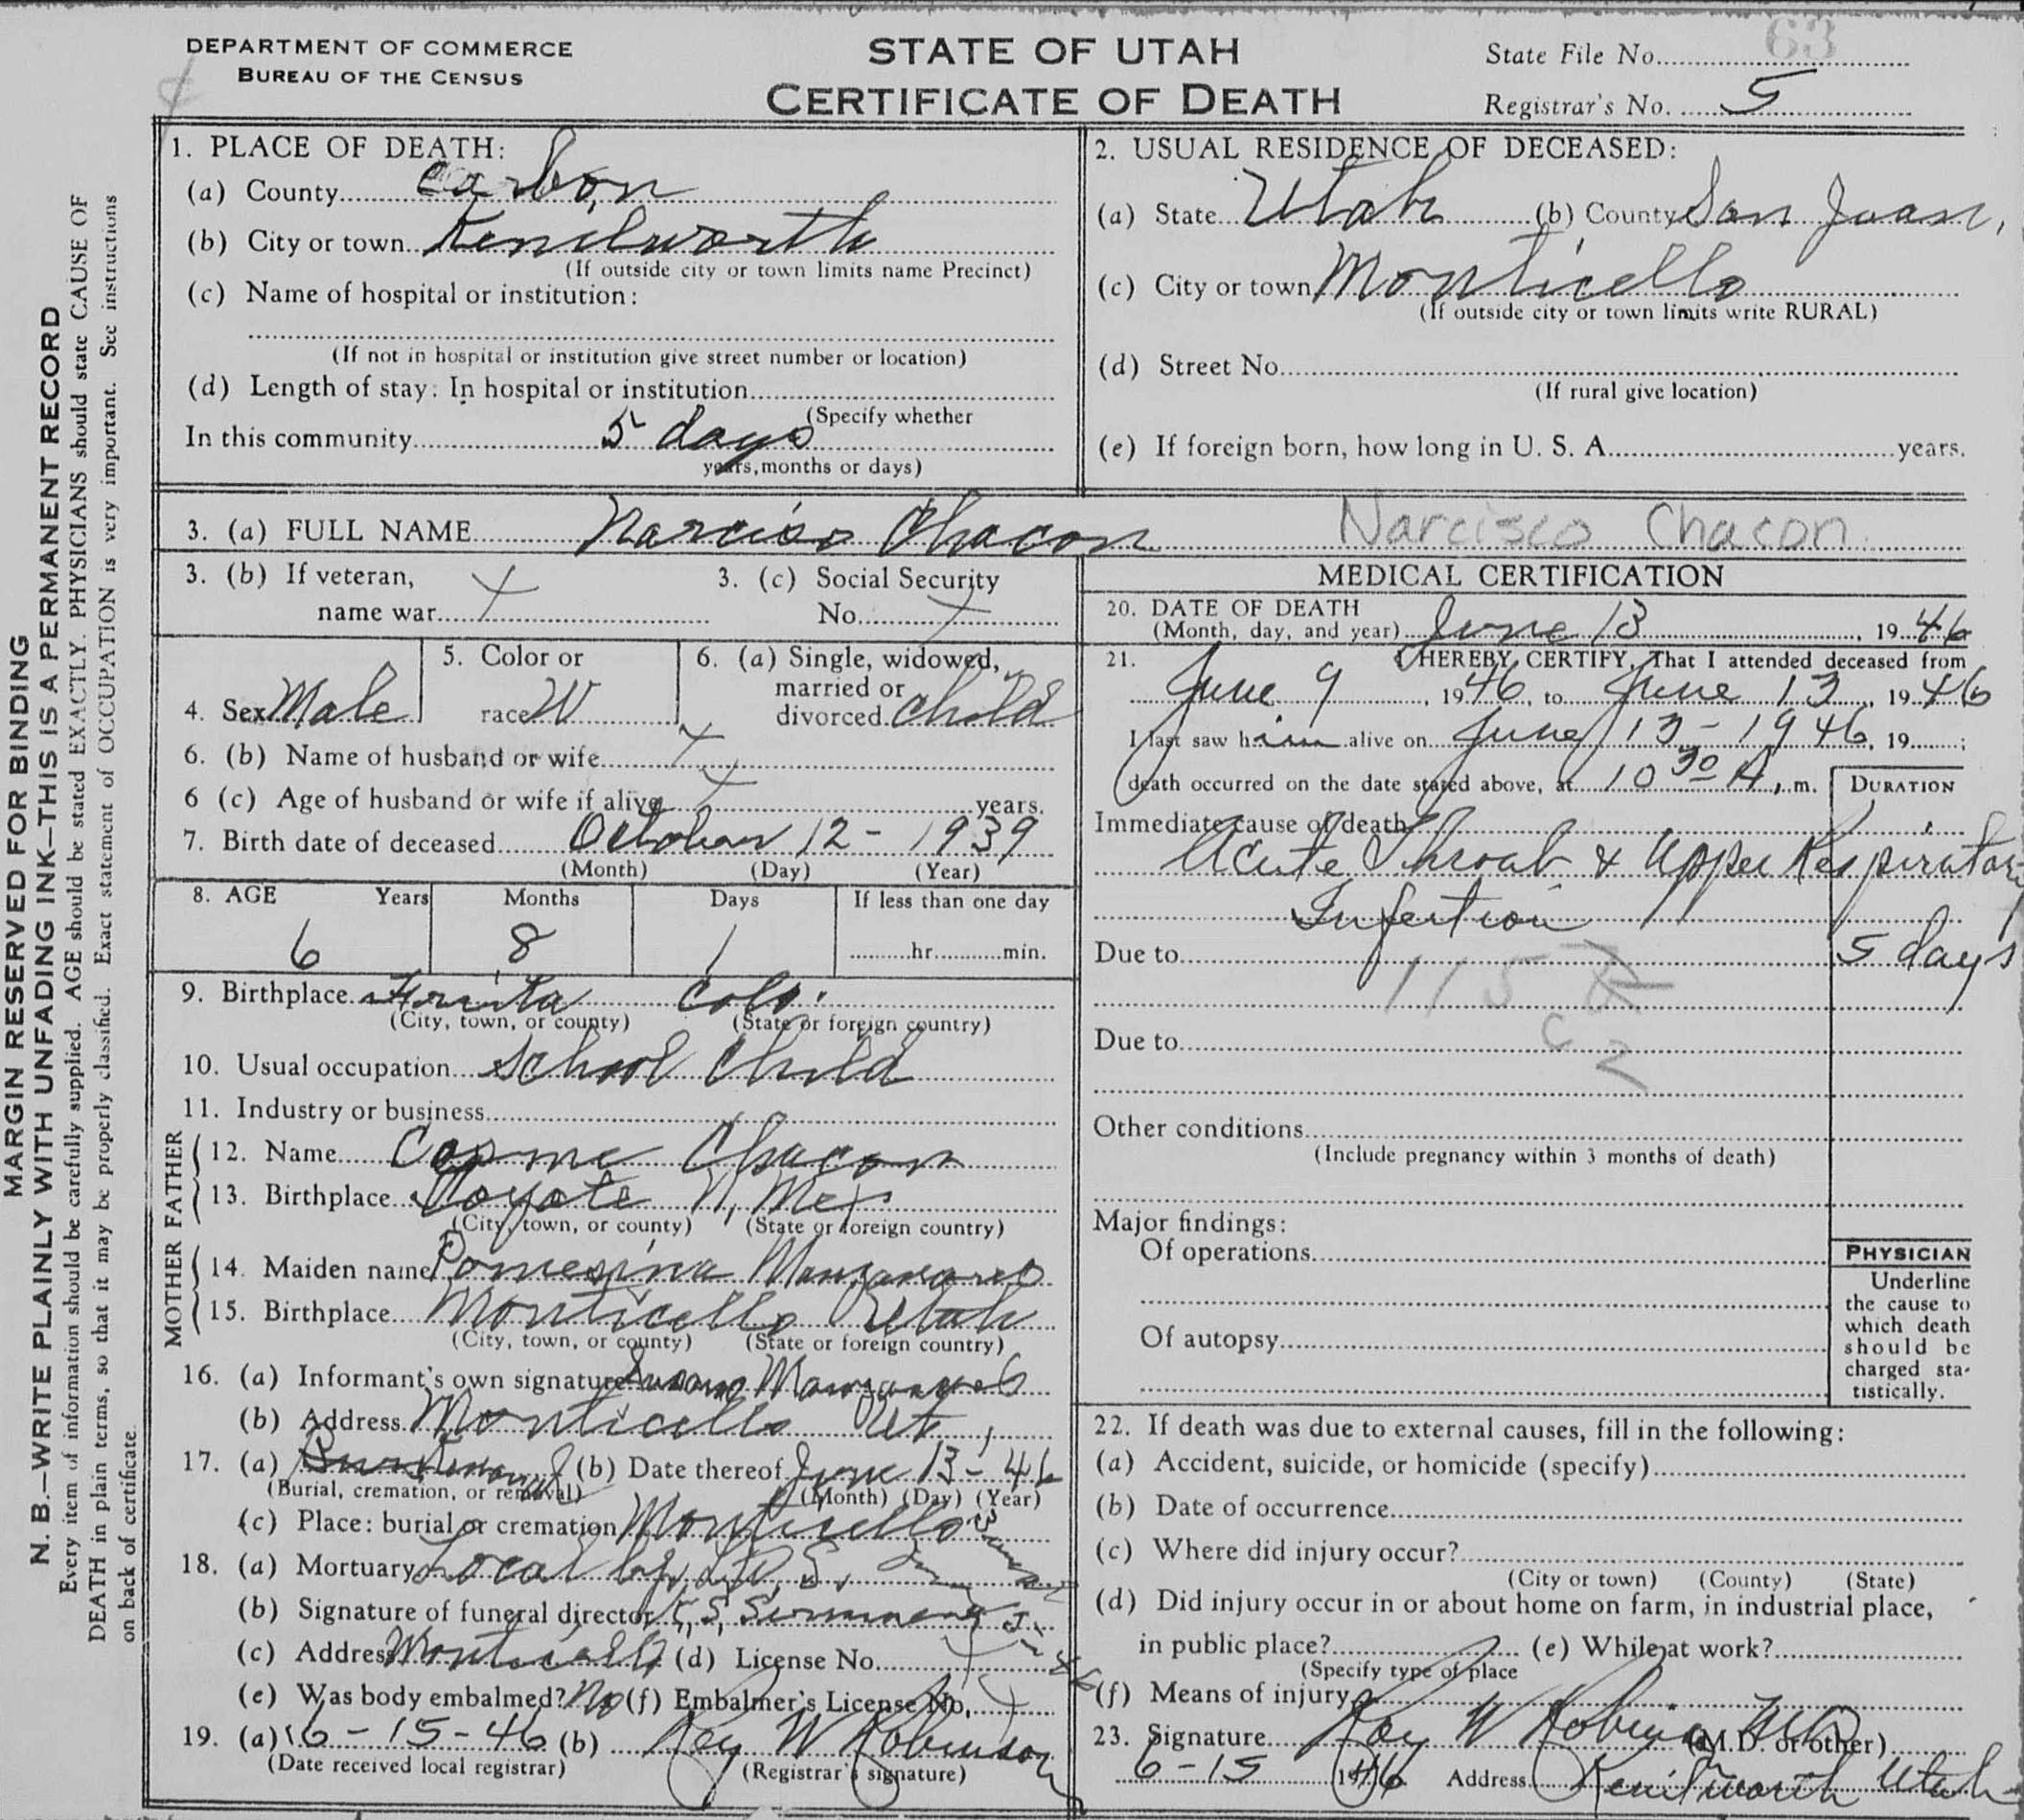 DEPARTMENT OF COMMERCE
BUREAU OF THE CENSUS
STATE OF UTAH
CERTIFICATE OF DEATH
State File No. 63
Registrar's No. 5
MARGIN RESERVED FOR BINDING
N. B.—WRITE PLAINLY WITH UNFADING INK—THIS IS A PERMANENT RECORD
Every item of information should be carefully supplied. AGE should be stated EXACTLY. PHYSICIANS should state CAUSE OF
DEATH in plain terms, so that it may be properly classified. Exact statement of OCCUPATION is very important. See instructions
on back of certificate.
1. PLACE OF DEATH:
(a) County Carbon
(b) City or town Kenilworth
(If outside city or town limits name Precinct)
(c) Name of hospital or institution:
(If not in hospital or institution give street number or location)
(d) Length of stay: In hospital or institution
(Specify whether
In this community 5 days
years, months or days)
2. USUAL RESIDENCE OF DECEASED:
(a) State Utah (b) County San Juan,
(c) City or town Monticello
(If outside city or town limits write RURAL)
(d) Street No.
(If rural give location)
(e) If foreign born, how long in U. S. A. years.
3. (a) FULL NAME Narciso Chacon Narcisco Chacon
3. (b) If veteran,
name war
3. (c) Social Security
No.
4. Sex Male
5. Color or
race W
6. (a) Single, widowed,
married or
divorced child
6. (b) Name of husband or wife
6 (c) Age of husband or wife if alive years.
7. Birth date of deceased October 12 - 1939
(Month) (Day) (Year)
8. AGE Years Months Days If less than one day
6 8 1 hr. min.
9. Birthplace Fruita Colo.
(City, town, or county) (State or foreign country)
10. Usual occupation School Child
11. Industry or business
FATHER
12. Name Cosme Chacon
13. Birthplace Coyote N, Mex
(City, town, or county) (State or foreign country)
MOTHER
14. Maiden name Manzanares
15. Birthplace Monticello Utah
(City, town, or county) (State or foreign country)
16. (a) Informant's own signature Manzanares
(b) Address Monticello Ut,
17. (a) Removal (b) Date thereof June 13-46
(Burial, cremation, or removal) (Month) (Day) (Year)
(c) Place: burial or cremation Monticello
18. (a) Mortuary Local by L.D.S.
(b) Signature of funeral director
(c) Address Monticello (d) License No.
(e) Was body embalmed? No (f) Embalmer's License No.
19. (a) 6-15-46 (b) Roy W Robinson
(Date received local registrar) (Registrar's signature)
MEDICAL CERTIFICATION
20. DATE OF DEATH
(Month, day, and year) June 13, 1946
21. I HEREBY CERTIFY, That I attended deceased from
June 9, 1946, to June 13, 1946
I last saw him alive on June 13-1946, 19 ;
death occurred on the date stated above, at 10 30 A, m.
DURATION
Immediate cause of death
Acute Throat & Upper Respiratory
Infection
Due to 5 days
115
C
2
Due to
Other conditions
(Include pregnancy within 3 months of death)
Major findings:
Of operations
Of autopsy
PHYSICIAN
Underline
the cause to
which death
should be
charged sta-
tistically.
22. If death was due to external causes, fill in the following:
(a) Accident, suicide, or homicide (specify)
(b) Date of occurrence
(c) Where did injury occur?
(City or town) (County) (State)
(d) Did injury occur in or about home on farm, in industrial place,
in public place? (e) While at work?
(Specify type of place
(f) Means of injury
23. Signature Roy W Robinson MD (M.D. or other)
6-15 1946 Address Kenilworth Utah